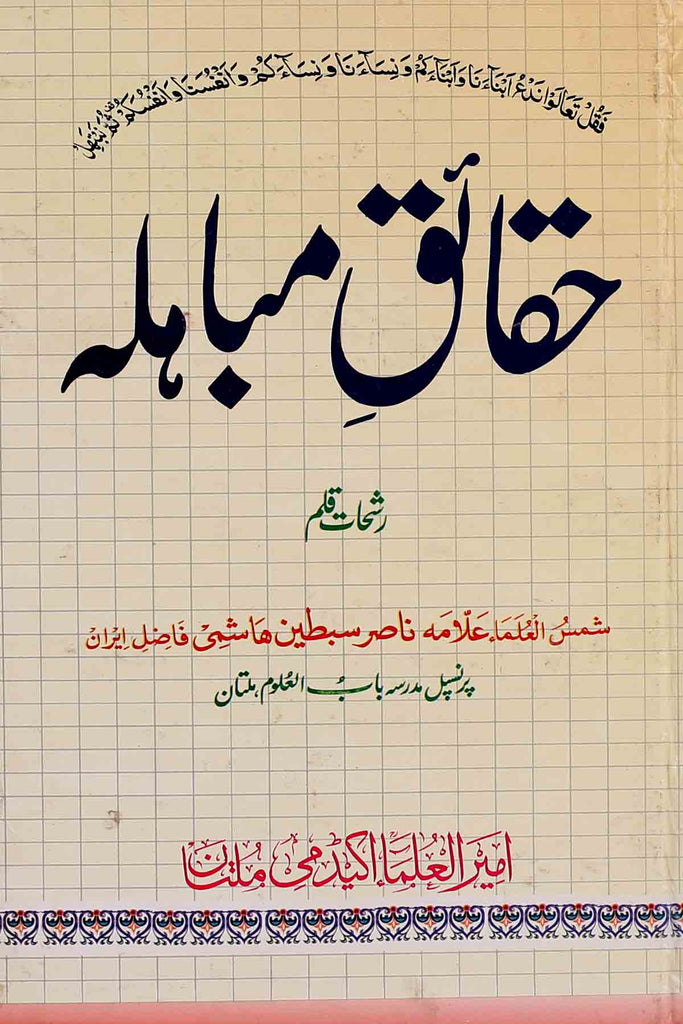 فَقُلْ تَعَالَوْا نَدْعُ اَبْنَآءَنَا وَاَبْنَآءَكُمْ وَنِسَآءَنَا وَنِسَآءَكُمْ وَاَنْفُسَنَا وَاَنْفُسَكُمْ ثُمَّ نَبْتَهِلْ
حقائقِ مباہلہ
رشحات قلم
شمسُ الْعُلَمَاء عَلّامَہ ناصر سبطین ھاشمِیْ فَاضِلِ اِیْرَانْ
پرنسپل مدرسہ بابُ العُلوم ملتان
امیر العُلمَآء اکیڈمیِ مُلتَانْ